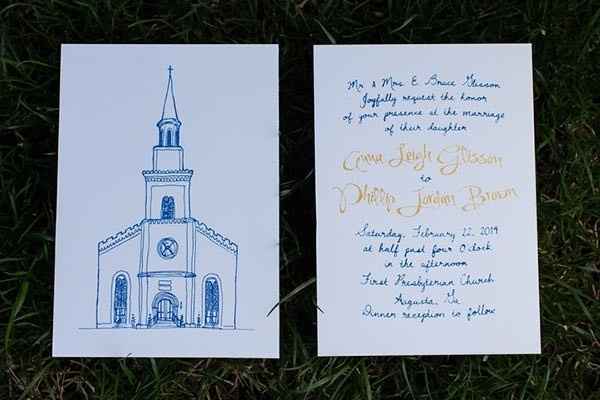 Mr & Mrs E Bruce Glisson
Joyfully request the honor
of your presence at the marriage
of their daughter
Anna Leigh Glisson
to
Phillip Jordan Brown
Saturday, February 22, 2014
at half past four O'clock
in the afternoon
First Presbyterian Church
Augusta, Ga
Dinner reception to follow